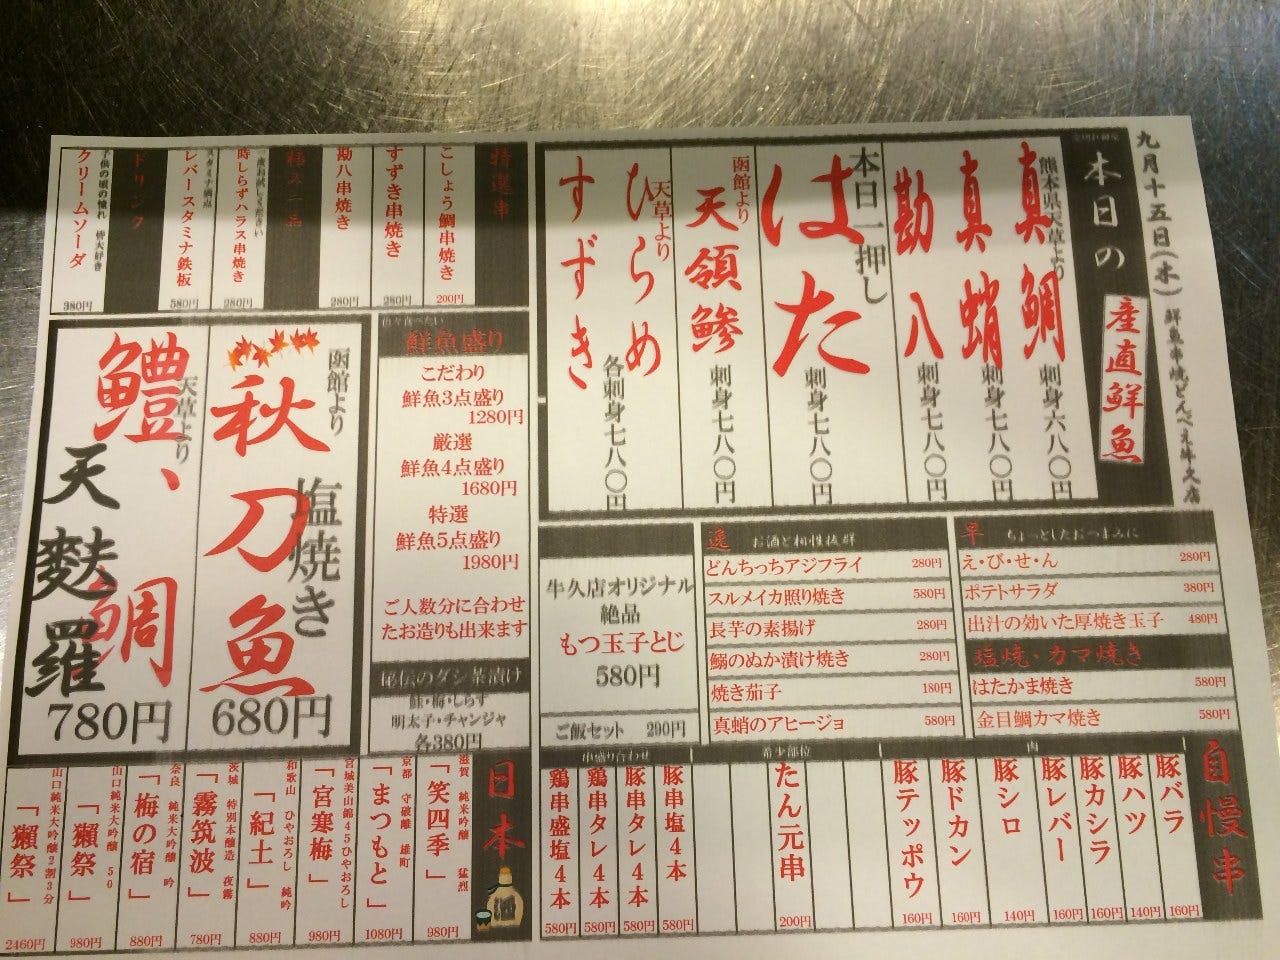 九月十五日(木) 鮮魚串焼どんべえ牛久店
本日の
産直鮮魚
熊本県天草より
真鯛 刺身六八〇円
真蛸 刺身七八〇円
勘八 刺身七八〇円
本日一押し
はた 刺身七八〇円
函館より
天領鯵 刺身七八〇円
天草より
ひらめ
すずき
各刺身七八〇円
特選串
こしょう鯛串焼き 200円
すずき串焼き 280円
勘八串焼き 280円
時しらずハラス串焼き 280円
レバースタミナ鉄板 580円
ドリンク
子供の頃の憧れ 皆大好き
クリームソーダ 380円
色々食べたい
鮮魚盛り
こだわり
鮮魚3点盛り
1280円
厳選
鮮魚4点盛り
1680円
特選
鮮魚5点盛り
1980円
ご人数分に合わせ
たお造りも出来ます
秘伝のダシ茶漬け
鮭・梅・しらす
明太子・チャンジャ
各380円
函館より
秋刀魚
塩焼き
680円
天草より
鱧、鯛
天麩羅
780円
牛久店オリジナル
絶品
もつ玉子とじ
580円
ご飯セット 290円
逸 お酒と相性抜群
どんちっちアジフライ 280円
スルメイカ照り焼き 580円
長芋の素揚げ 280円
鰯のぬか漬け焼き 280円
焼き茄子 180円
真蛸のアヒージョ 580円
早 ちょっとしたおつまみに
え・び・せ・ん 280円
ポテトサラダ 380円
出汁の効いた厚焼き玉子 480円
塩焼・カマ焼き
はたかま焼き 580円
金目鯛カマ焼き 580円
自慢串
肉
豚バラ 160円
豚ハツ 140円
豚カシラ 160円
豚レバー 160円
豚シロ 140円
豚ドカン 160円
豚テッポウ 160円
希少部位
たん元串 200円
串盛り合わせ
豚串塩4本 580円
豚串タレ4本 580円
鶏串タレ4本 580円
鶏串盛塩4本 580円
日本酒
滋賀 純米吟醸 猛烈
「笑四季」 980円
京都 守破離 雄町
「まつもと」 1080円
宮城美山錦45ひやおろし
「宮寒梅」 980円
和歌山 ひやおろし 純吟
「紀土」 880円
茨城 特別本醸造 夜霧
「霧筑波」 780円
奈良 純米大吟醸 吟
「梅の宿」 880円
山口純米大吟醸 50
「獺祭」 980円
山口純米大吟醸2割3分
「獺祭」 2460円